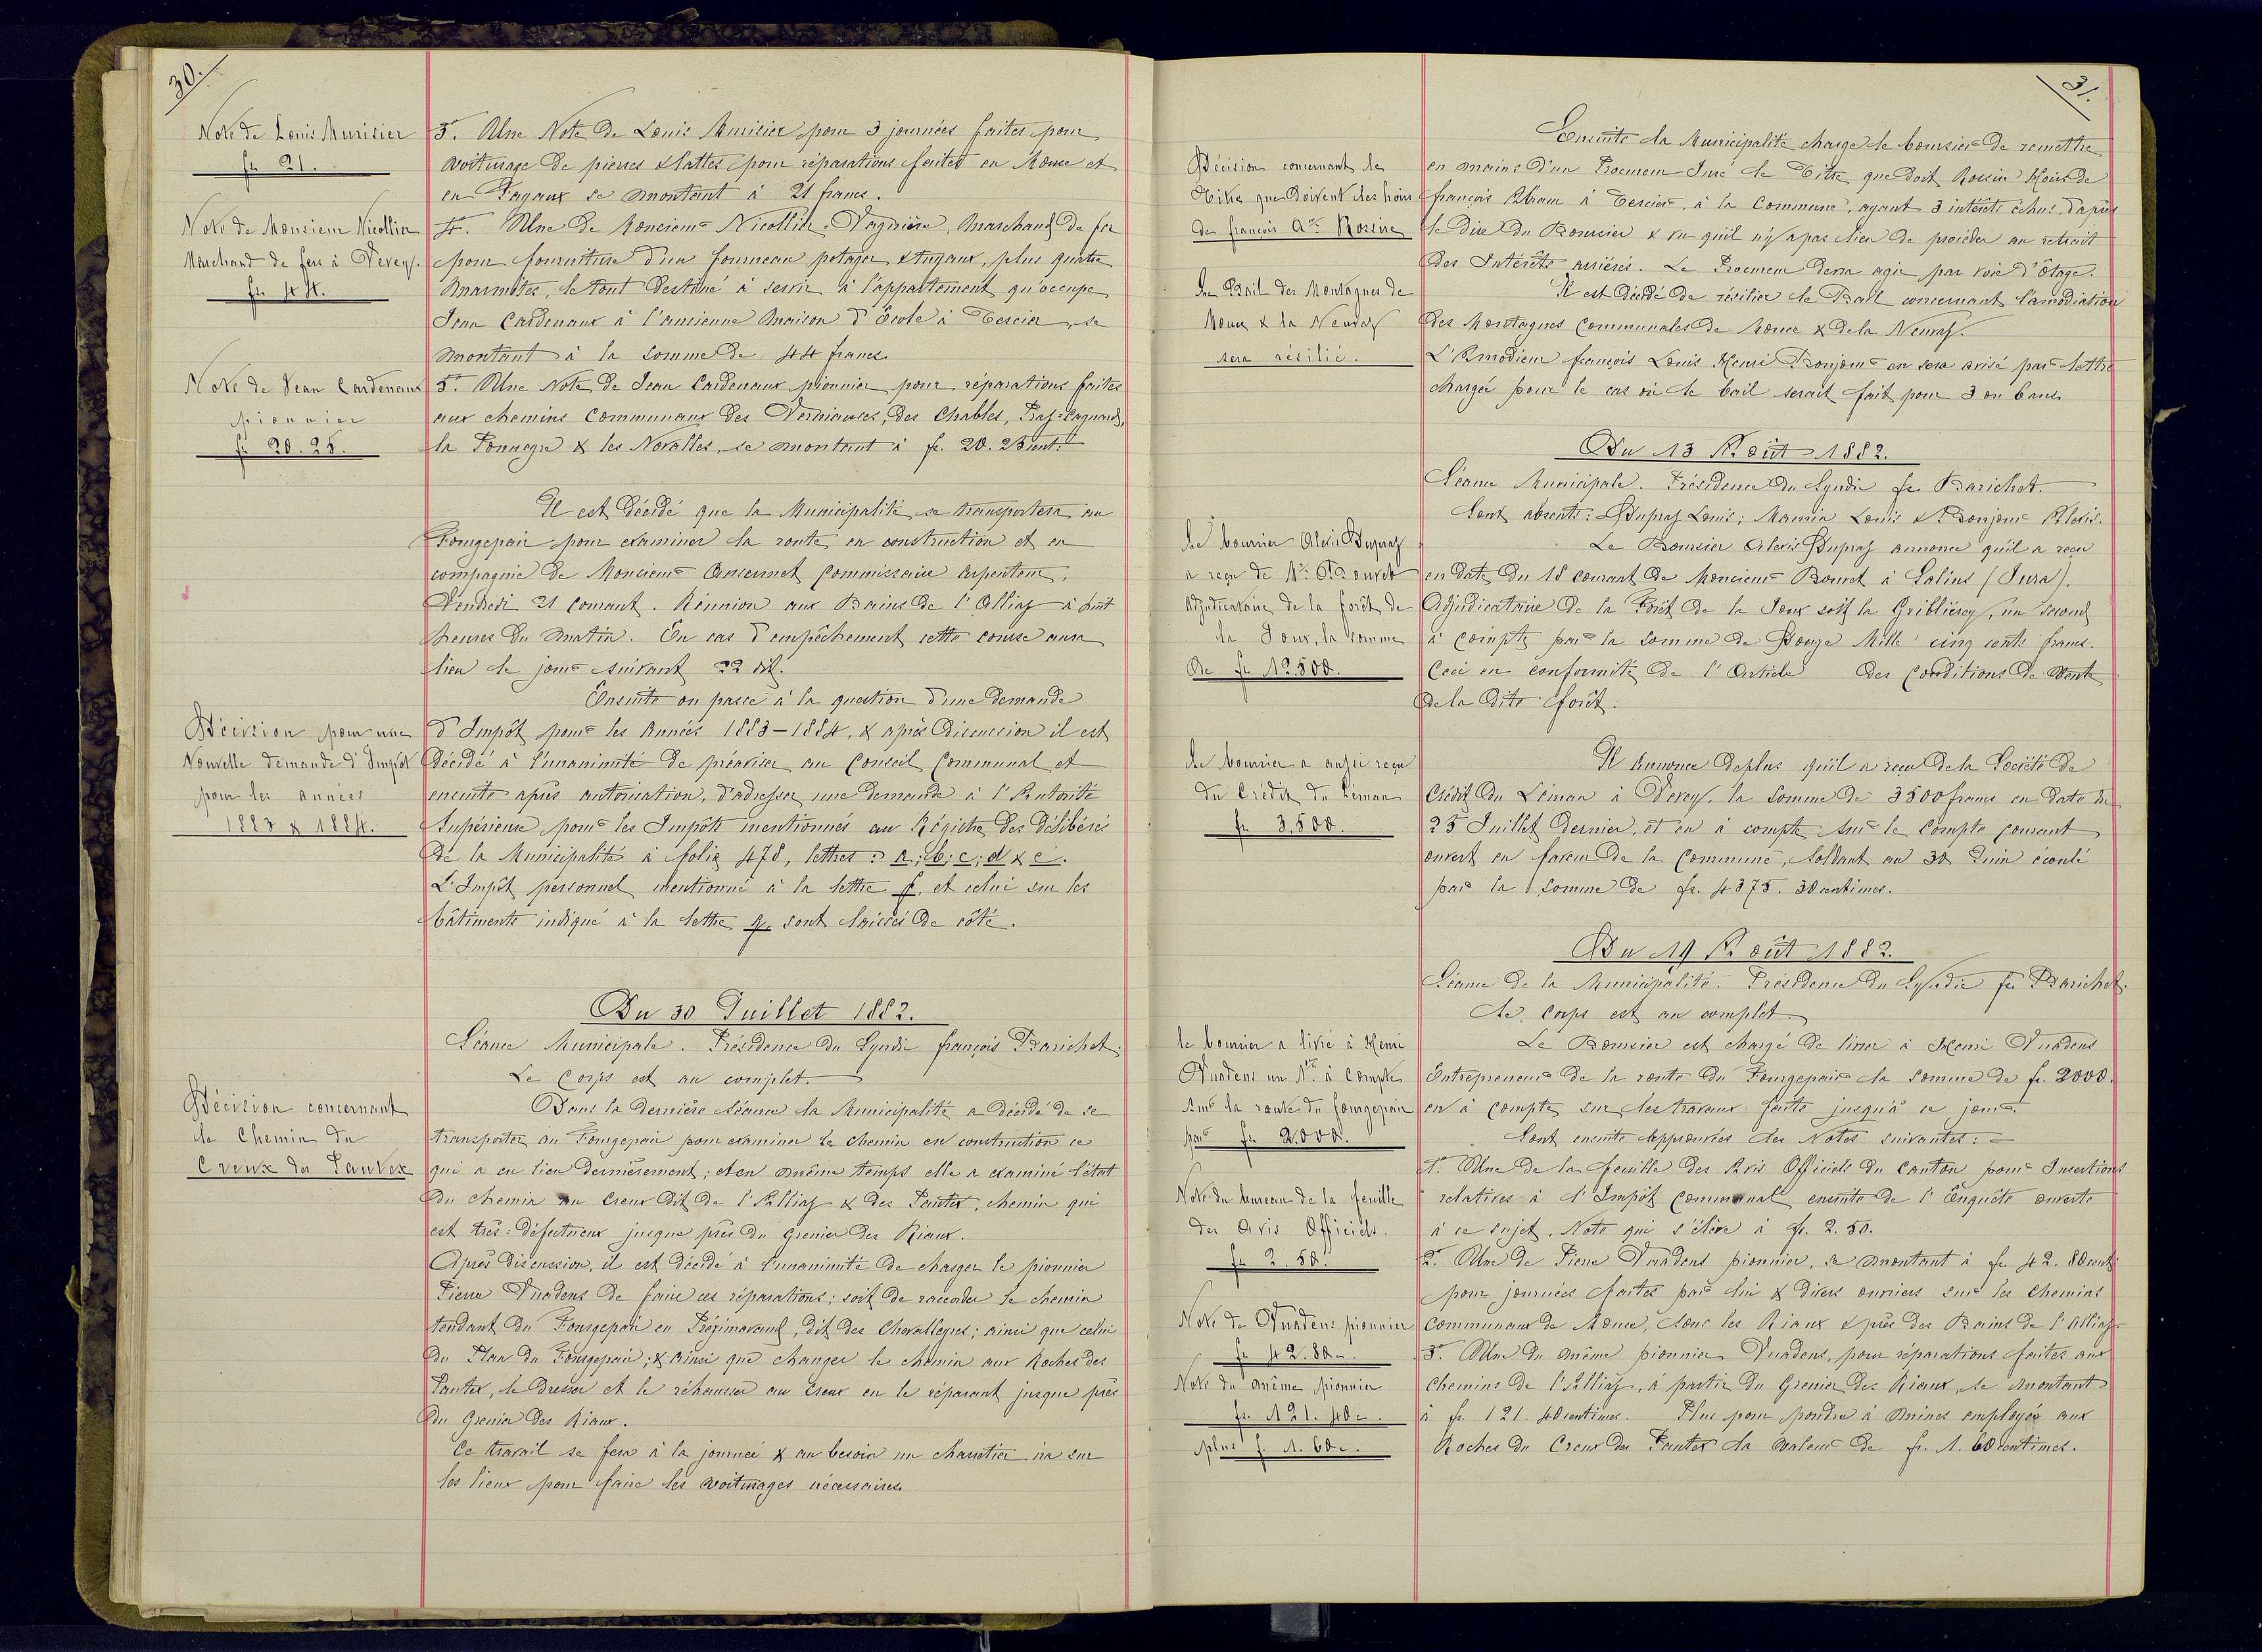 30.
Note de Louis Murisier
fr. 21.
3°. Une Note de Louis Murisier pour 3 journées faites pour
voiturage de pierres & lattes pour réparations faites en Mouse et
en Fayaux se montant à 21 francs.
Note de Monsieur Nicollier
Marchand de fers à Vevey.
fr. 44.
4°. Une de Monsieur Nicollier-Vagnière, Marchand de fer
pour fourniture d'un fourneau potager & tuyaux, plus quatre
marmites, le tout destiné à servir à l'appartement qu'occupe
Jean Cardenaux à l'ancienne Maison d'École à Tercier, se
montant à la somme de 44 francs.
Note de Jean Cardenaux
pionnier
fr. 20. 25.
5°. Une Note de Jean Cardenaux pionnier pour réparations faites
aux chemins Communaux des Verniauses, des Chables, Praz-Cagnard,
la Fonnegre & les Novalles, se montant à fr. 20. 25 cent.
Il est décidé que la Municipalité se transportera au
Fourgepair pour examiner la route en construction et en
compagnie de Monsieur Ansermet Commissaire Arpenteur,
Vendredi 21 courant. Réunion aux Bains de l'Alliaz à huit
heures du matin. En cas d'empêchement cette course aura
lieu le jour suivant 22 dit.
Ensuite on passe à la question d'une demande
Décision pour une
Nouvelle demande d'Impôt
pour les années
1883 & 1884.
d'Impôt pour les Années 1883-1884, & après discussion il est
décidé à l'unanimité de préaviser au Conseil Communal et
ensuite après autorisation, d'adresser une demande à l'Autorité
Supérieure pour les Impôts mentionnés au Régistre des délibérés
de la Municipalité à folio 478, lettres: a; b; c; d & e.
L'Impôt personnel mentionné à la lettre f, et celui sur les
bâtiments indiqué à la lettre g, sont laissés de côté.
Du 30 Juillet 1882.
Séance Municipale. Présidence du Syndic françois Barichet.
Le Corps est au complet.
Décision concernant
le Chemin du
Creux des Pautex
Dans la dernière séance la Municipalité a décidé de se
transporter au Fourgepair pour examiner le chemin en construction ce
qui a eu lieu dernièrement; et en même temps elle a examiné l'état
du chemin au Creux dit de l'Alliaz & des Pautex, chemin qui
est très: défectueux jusque près du Grenier des Riaux.
Après discussion, il est décidé à l'unanimité de charger le pionnier
Pierre Vuadens de faire ces réparations; soit de raccorder le chemin
tendant du Fourgepair en Préximarand, dit des Chevalleyres; ainsi que celui
du Plan du Fourgepair; & ainsi que changer le chemin aux Roches des
Pautex, le dresser et le réhausser au Creux en le réparant jusque près
du Grenier des Riaux.
Ce travail se fera à la journée & au besoin un charretier ira sur
les lieux pour faire les voiturages nécessaires.
31.
Ensuite la Municipalité charge le boursier de remettre
Décision concernant le
titre que doivent les hoirs
de françois A. Rossire
en mains d'un Procureur Juré le Titre que doit Rossire Hoirs de
françois Abram à Tercier, à la Commune, ayant 3 intérêts échus, d'après
le dire du Boursier & vu qu'il n'y a pas lieu de procéder au retrait
des Intérêts arriérés. Le Procureur devra agir par voie d'ôtage.
Le Bail des Montagnes de
Mouse & la Neuvaz
sera résilié.
Il est décidé de résilier le Bail concernant l'amodiation
des Montagnes Communales de Mouse & de la Neuvaz.
L'Amodieur françois Louis Henri Bonjour en sera avisé par lettre
chargée pour le cas où le bail serait fait pour 3 ou 6 ans.
Du 13 Août 1882.
Séance Municipale. Présidence du Syndic fs. Barichet.
Sont absents: Dupraz Louis; Mamin Louis & Bonjour Alexis.
Le boursier Alexis Dupraz
a reçu de Mr. Bouvet
Adjudicataire de la forêt de
la Joux, la somme
de fr. 12.500.
Le Boursier Alexis Dupraz annonce qu'il a reçu
en date du 18 courant de Monsieur Bouvet à Salins (Jura),
Adjudicataire de la Forêt de la Joux soit la Griblièrey, un second
à compte par la somme de Douze Mille cinq cents francs.
Ceci en conformité de l'Article des Conditions de vente
de la dite forêt.
Le boursier a aussi reçu
du Crédit du Léman
fr. 3,500.
Il annonce de plus qu'il a reçu de la Société de
Crédit du Léman à Vevey, la somme de 3500 francs en date du
25 Juillet dernier, et en à compte sur le Compte Courant
ouvert en faveur de la Commune, soldant au 30 Juin écoulé
par la somme de fr. 4375. 30 centimes.
Du 19 Août 1882.
Séance de la Municipalité. Présidence du Syndic fs Barichet.
Le Corps est au complet.
le boursier a livré à Henri
Vuadens un 1er à compte
sur la route du fourgepair
par fr. 2.000.
Le Boursier est chargé de livrer à Henri Vuadens
Entrepreneur de la route du Fourgepair la somme de fr. 2000.
en à compte sur les travaux faits jusqu'à ce jour.
Sont ensuite approuvées les Notes suivantes:
Note du bureau de la feuille
des Avis Officiels.
fr. 2.50.
1°. Une de la feuille des Avis Officiels du Canton pour Insertions
relatives à l'Impôt Communal ensuite de l'Enquête ouverte
à ce sujet. Note qui s'élève à fr. 2.50.
Note de Vuadens pionnier
fr. 42. 80 c.
2°. Une de Pierre Vuadens pionnier, se montant à fr. 42. 80 cent.
pour journées faites par lui & divers ouvriers sur les chemins
Communaux de Mouse, sous les Riaux & près des Bains de l'Alliaz
Note du même pionnier
fr. 121. 40 c.
plus f. 1. 60 c.
3°. Une du même pionnier Vuadens, pour réparations faites aux
chemins de l'Alliaz, à partir du Grenier des Riaux, se montant
à fr. 121. 40 centimes. Plus pour poudre à mines employée aux
Roches du Creux des Pautex la valeur de fr. 1. 60 centimes.